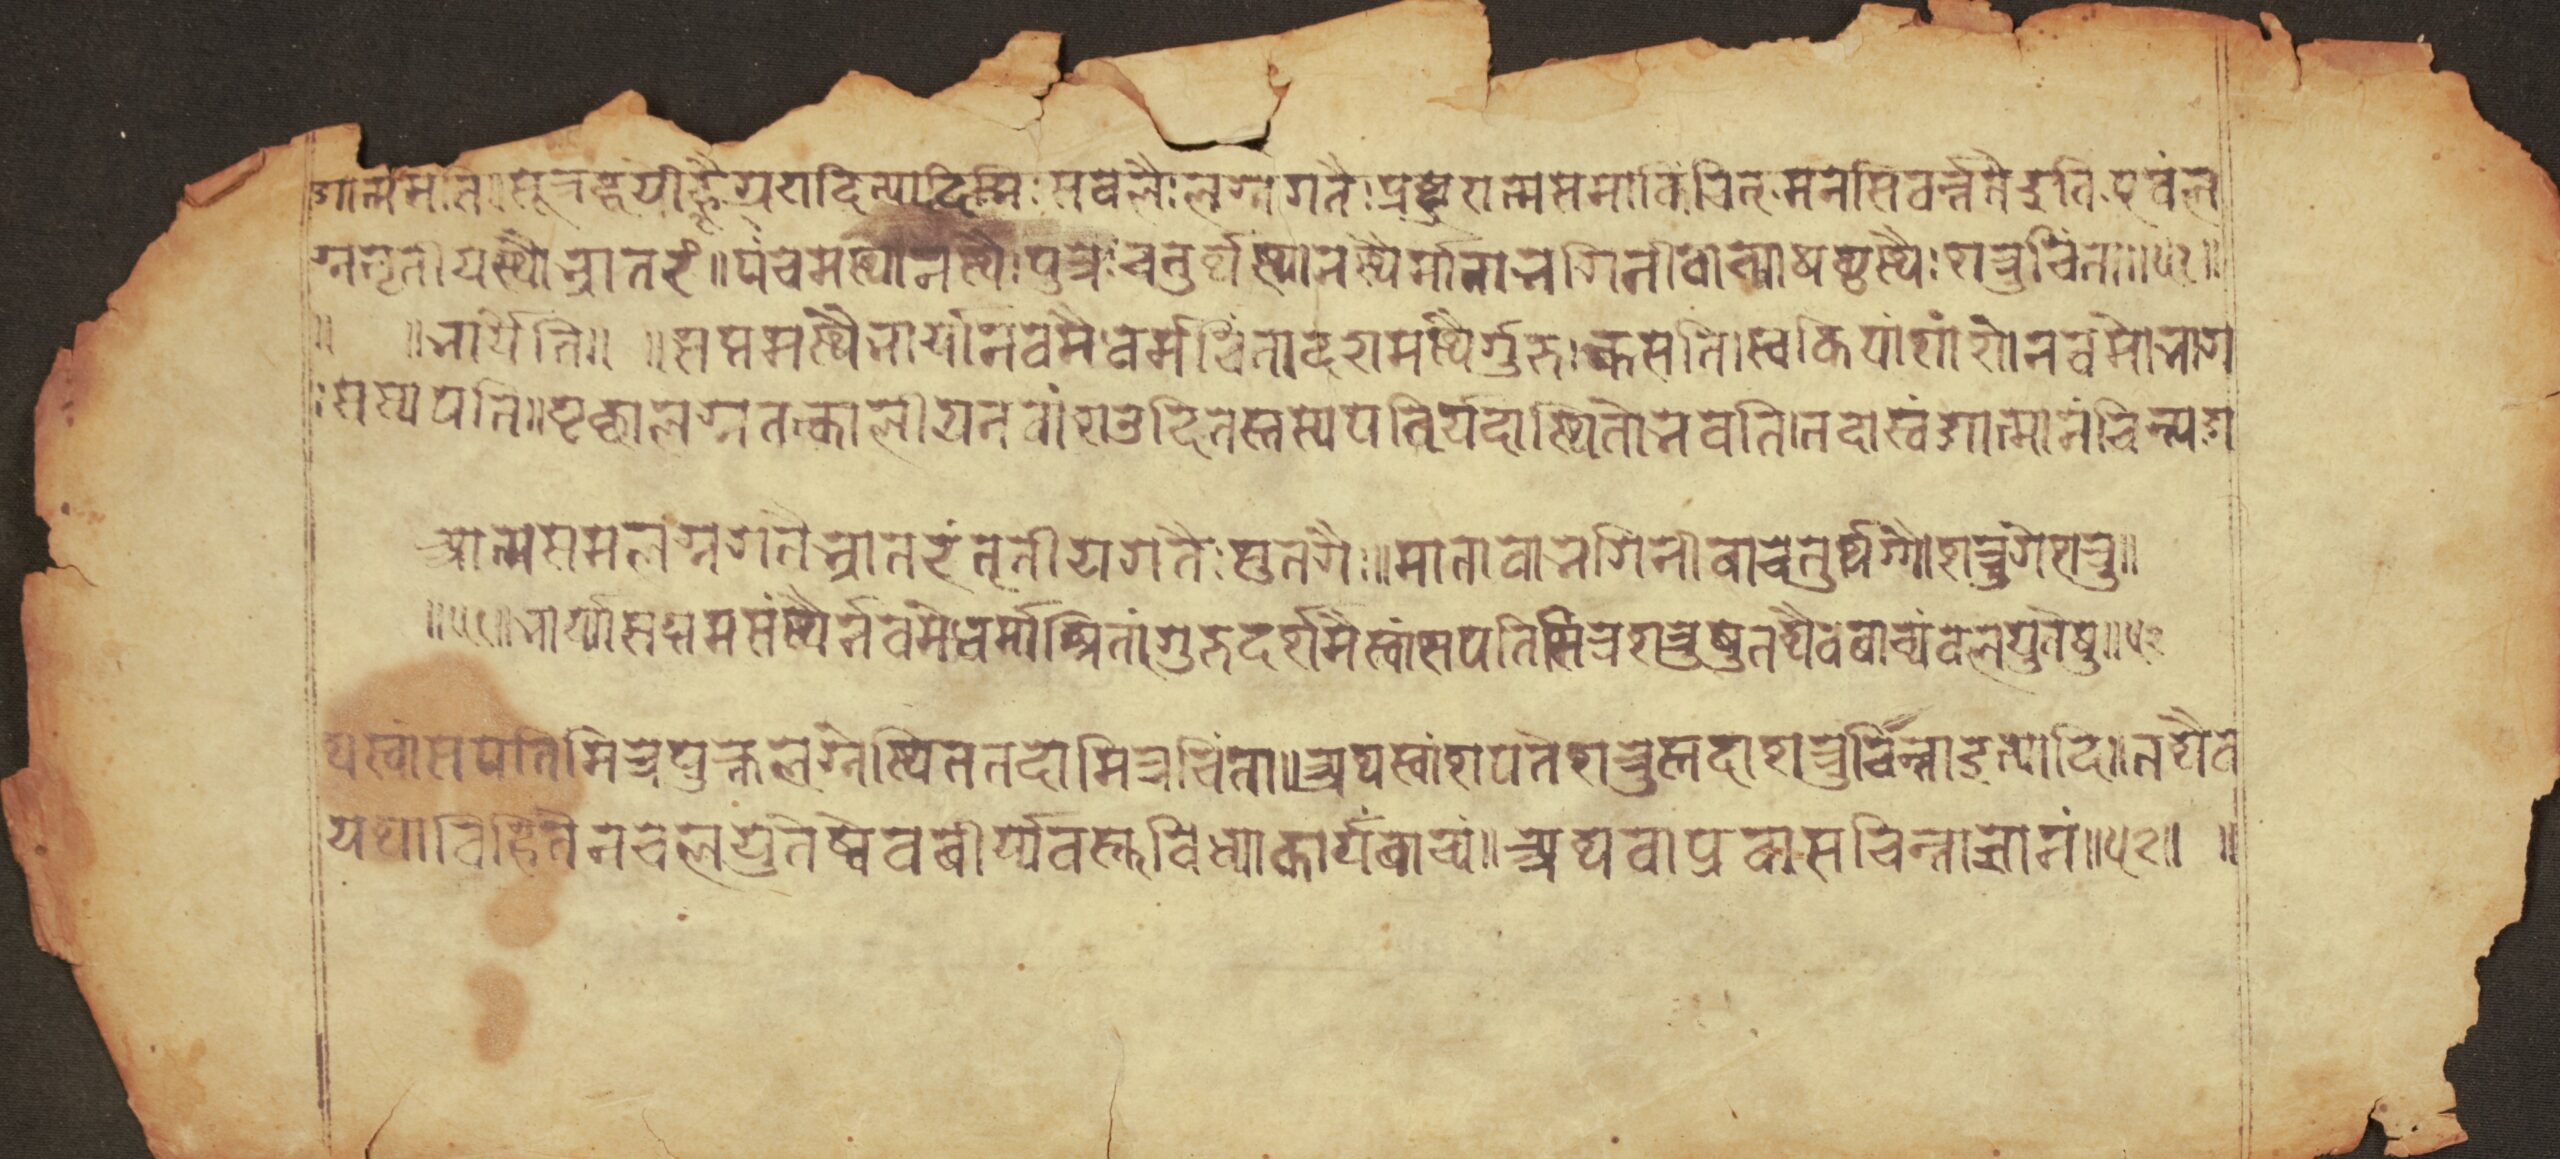 गात्ममिति। सूत्रद्वयी ग्रहैरादित्यादिभिः सवलैः लग्नगतैः प्रष्टुरात्मसमा किंचित् मनसि वर्त्तते इति एवं ल
ग्नतृतीयस्थै भ्रातरं॥ पंचमस्थानस्थै। पुत्रः चतुर्थस्थानस्थैर्माता भगिनी वा त्या षष्ठस्थैः शत्रुचिंता॥५१॥
॥ ॥भार्येति॥ ॥सप्तमस्थै भार्या नवमै धर्मचिंता दशमस्थैर्गुरु। क्वसति। स्वकियांशां शो नवमो भाग
ः सस्य पति॥ पृछालग्नतत्कालीयनवांशउदितेस्तस्य पतिर्यदा स्थितो भवति। तदा स्वं आत्मानं चिन्त्य
आत्मसम लग्नगतै भ्रातरं तृतीयगतैः सुतगैः॥ माता वा भगिनी वा चतुर्थगौ। शत्रुगे शत्रु॥
॥५१॥ भार्या सप्तमसंस्थैर्नवमै धर्माश्रितां गुरु दशमै स्वांसपतिमित्रशत्रुषु तथैव वाच्यं वलयुतेषु॥५२
थ स्वांसपति मित्रे पुक्तलग्ने स्थित तदा मित्रचिंता॥ अथ स्वांशपते शत्रुस्तदा शत्रुचिन्ता इत्यादि॥ तथैव
यथा विहितेन वलयुतेष्वेव वीर्य्यवस्तुविध्या कार्यं वाच्यं॥ अथ वा प्रवासचिन्ताज्ञानं॥५२॥ ॥